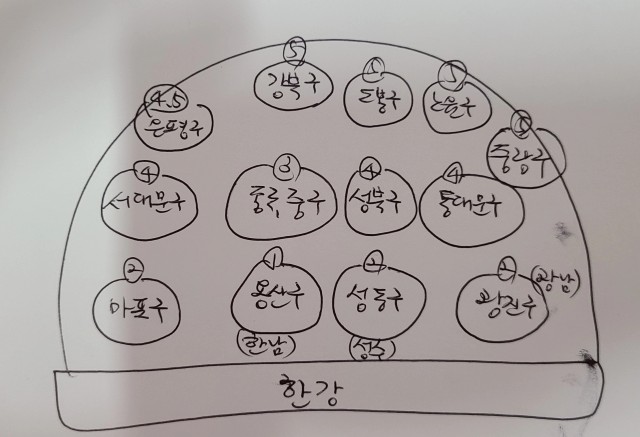 5
강북구
5
도봉구
5
노원구
4.5
은평구
5
중랑구
4
서대문구
3
종로, 중구
4
성북구
4
동대문구
2
마포구
1
용산구
(한남)
성동구
(성수)
광진구
(광남)
한강